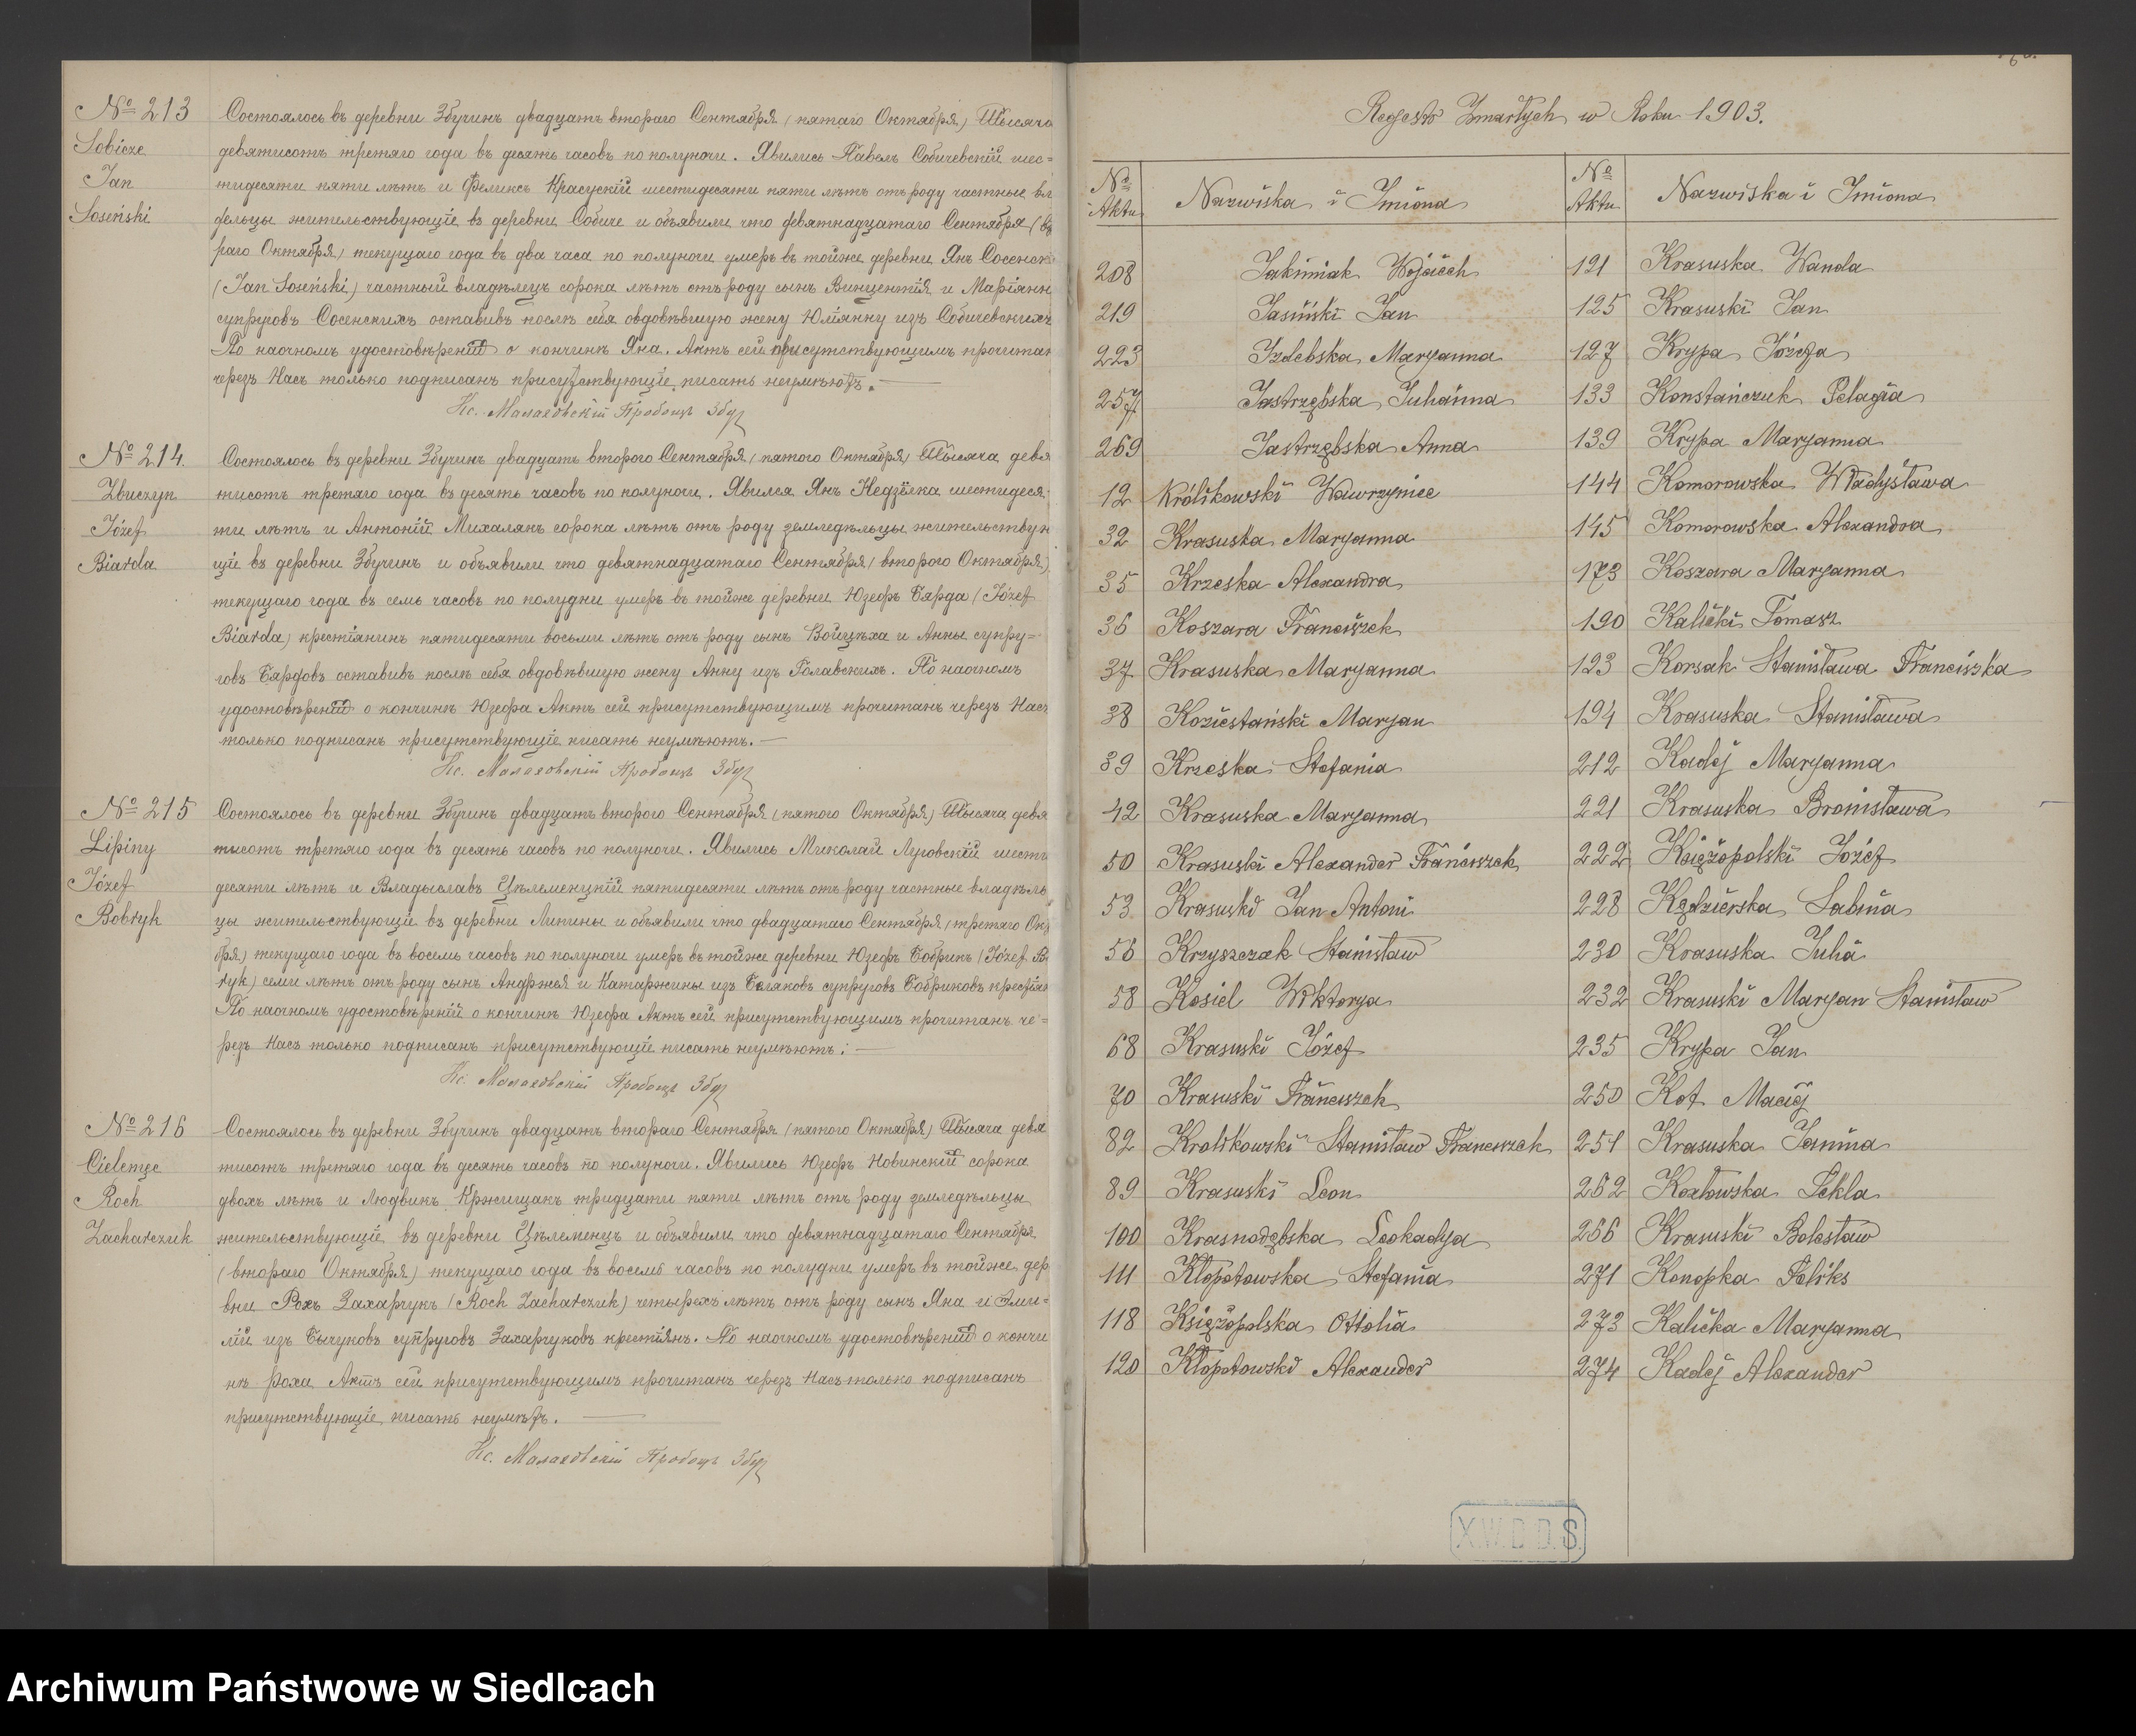 № 213
Sobicze
Jan
Soseński
Состоялось въ деревни Збучинъ двадцать втораго Сентября (пятаго Октября) Тысяча
девятисотъ третяго года въ десять часовъ по полуночи. Явились Павелъ Собичевскій шес=
тидесяти пяти лѣтъ и Феликсъ Красускій шестидесяти пяти лѣтъ отъ роду частные вла
дѣльцы жительствующіе въ деревни Собиче и объявили что девятнадцатаго Сентября (вто
раго Октября) текущаго года въ два часа по полуночи умеръ въ тойже деревни Янъ Сосенск
(Jan Soseński) частный владѣлецъ сорока лѣтъ отъ роду сынъ Винцентія и Маріянн
супруговъ Сосенскихъ оставивъ послѣ себя овдовѣвшую жену Юліянну изъ Собичевскихъ
По наочномъ удостовѣреніи о кончинѣ Яна. Актъ сей присутствующимъ прочитан
черезъ Насъ только подписанъ присутствующіе писать неумѣютъ.
Кс. Малаховскій Пробощъ Збуч
№ 214.
Zbuczyn
Józef
Biarda
Состоялось въ деревни Збучинъ двадцать второго Сентября (пятого Октября) Тысяча девя
тисотъ третяго года въ десять часовъ по полуночи. Явился Янъ Недзѣлка шестидеся
ти лѣтъ и Антоній Михалякъ сорока лѣтъ отъ роду земледѣльцы жительствую
щіе въ деревни Збучинъ и объявили что девятнадцатаго Сентября (второго Октября)
текущаго года въ семь часовъ по полудни умеръ въ тойже деревни Юзефъ Бярда (Józef
Biarda) крестіянинъ пятидесяти восьми лѣтъ отъ роду сынъ Войцѣха и Анны супру=
говъ Бярдовъ оставивъ послѣ себя овдовѣвшую жену Анну изъ Голавскихъ. По наочномъ
удостовѣреніи о кончинѣ Юзефа Актъ сей присутствующимъ прочитанъ черезъ Насъ
только подписанъ присутствующіе писать неумѣютъ.
Кс. Малаховскій Пробощъ Збуч
№ 215
Lipiny
Józef
Bobryk
Состоялось въ деревни Збучинъ двадцать второго Сентября (пятого Октября) Тысяча девя
тисотъ третяго года въ десять часовъ по полуночи. Явились Миколай Луговскій шесть
десяти лѣтъ и Владыславъ Цѣлеменцкій пятидесяти лѣтъ отъ роду частные владѣль
цы жительствующіе въ деревни Липины и объявили что двадцатаго Сентября (третяго Октя
бря) текущаго года въ восемь часовъ по полуночи умеръ въ тойже деревни Юзефъ Бобрикъ (Józef Bo
bryk) семи лѣтъ отъ роду сынъ Анджея и Катаржины изъ супруговъ Бобриковъ крестіян
По наочномъ удостовѣреніи о кончинѣ Юзефа Актъ сей присутствующимъ прочитанъ че=
резъ Насъ только подписанъ присутствующіе писать неумѣютъ.
Кс. Малаховскій Пробощъ Збуч
№ 216
Cielemęc
Roch
Zacharczuk
Состоялось въ деревни Збучинъ двадцать втораго Сентября (пятого Октября) Тысяча девя
тисотъ третяго года въ десять часовъ по полуночи. Явились Юзефъ Новинскій сорока
двохъ лѣтъ и Людвикъ Кржищакъ тридцати пяти лѣтъ отъ роду земледѣльцы
жительствующіе въ деревни Цѣлеменцъ и объявили что девятнадцатаго Сентября
(втораго Октября) текущаго года въ восемь часовъ по полудни умеръ въ тойже дер
вни Рохъ Захарчукъ (Roch Zacharczuk) четырехъ лѣтъ отъ роду сынъ Яна и Эми=
ліи изъ Бычуковъ супруговъ Захарчуковъ крестіянъ. По наочномъ удостовѣреніи о кончи
нѣ Роха Актъ сей присутствующимъ прочитанъ черезъ Насъ только подписанъ
присутствующіе писать неумѣтъ.
Кс. Малаховскій Пробощъ Збуч
Regestr Zmarłych w Roku 1903.
№ Aktu Nazwiska i Imiona
208 Jakimiak Wojciech
219 Jasiński Jan
223 Izdebska Maryanna
257 Jastrzębska Julianna
269 Jastrzębska Anna
12 Królikowski Wawrzyniec
32 Krasuska Maryanna
35 Krzeska Alexandra
36 Koszara Franciszek
37 Krasuska Maryanna
38 Koziestański Maryan
39 Krzeska Stefania
42 Krasuska Maryanna
50 Krasuski Alexander Franciszek
53 Krasuski Jan Antoni
56 Krzyszczak Stanisław
58 Kosiel Wiktorya
68 Krasuski Józef
70 Krasuski Franciszek
82 Krolikowski Stanisław Franciszek
89 Krasuski Leon
100 Krasnodębska Leokadya
111 Kłopotowska Stefania
118 Księżopolska Ottolia
120 Kłopotowski Alexander
№ Aktu Nazwiska i Imiona
121 Krasuska Wanda
125 Krasuski Jan
127 Krypa Józefa
133 Konstańczuk Pelagia
139 Krypa Maryanna
144 Komorowska Władysława
145 Komorowska Alexandra
173 Koszara Maryanna
190 Kalicki Tomasz
193 Korsak Stanisława Franciszka
194 Krasuska Stanisława
212 Kadej Maryanna
221 Krasuska Bronisława
222 Księżopolski Józef
228 Kędzierska Sabina
230 Krasuska Julia
232 Krasuski Maryan Stanisław
235 Krypa Jan
250 Kot Maciej
251 Krasuska Janina
252 Kozłowska Tekla
266 Krasuski Bolesław
271 Konopka Feliks
273 Kalicka Maryanna
274 Kadej Alexander
X.W.D.D.S.
Archiwum Państwowe w Siedlcach